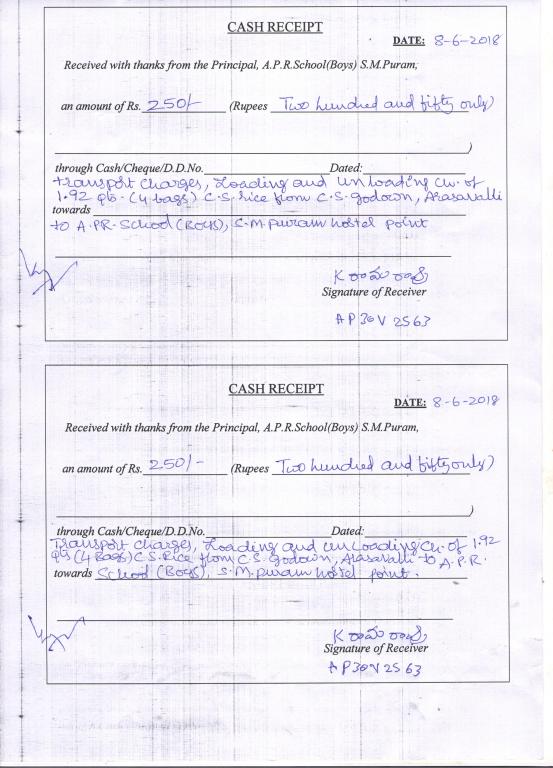 CASH RECEIPT
DATE: 8-6-2018
Received with thanks from the Principal, A.P.R.School(Boys) S.M.Puram,
an amount of Rs. 250/- (Rupees Two hundred and fifty only)
)
through Cash/Cheque/D.D.No. Dated:
Transport charges, Loading and unloading cu. of
1.92 qts. (4 bags) C.S. rice from C.S. godown, Arasavalli
towards
to A.P.R. School (Boys), S.M. puram hostel point
K రామ రావు
Signature of Receiver
AP30V 2563
CASH RECEIPT
DATE: 8-6-2018
Received with thanks from the Principal, A.P.R.School(Boys) S.M.Puram,
an amount of Rs. 250/- (Rupees Two hundred and fifty only)
)
through Cash/Cheque/D.D.No. Dated:
Transport charges, Loading and unloading cu. of 1.92
qts (4 Bags) C.S. Rice from C.S. godown, Arasavalli to A.P.R.
towards School (Boys), S.M. puram hostel point.
K రామ రావు
Signature of Receiver
AP30V 2563